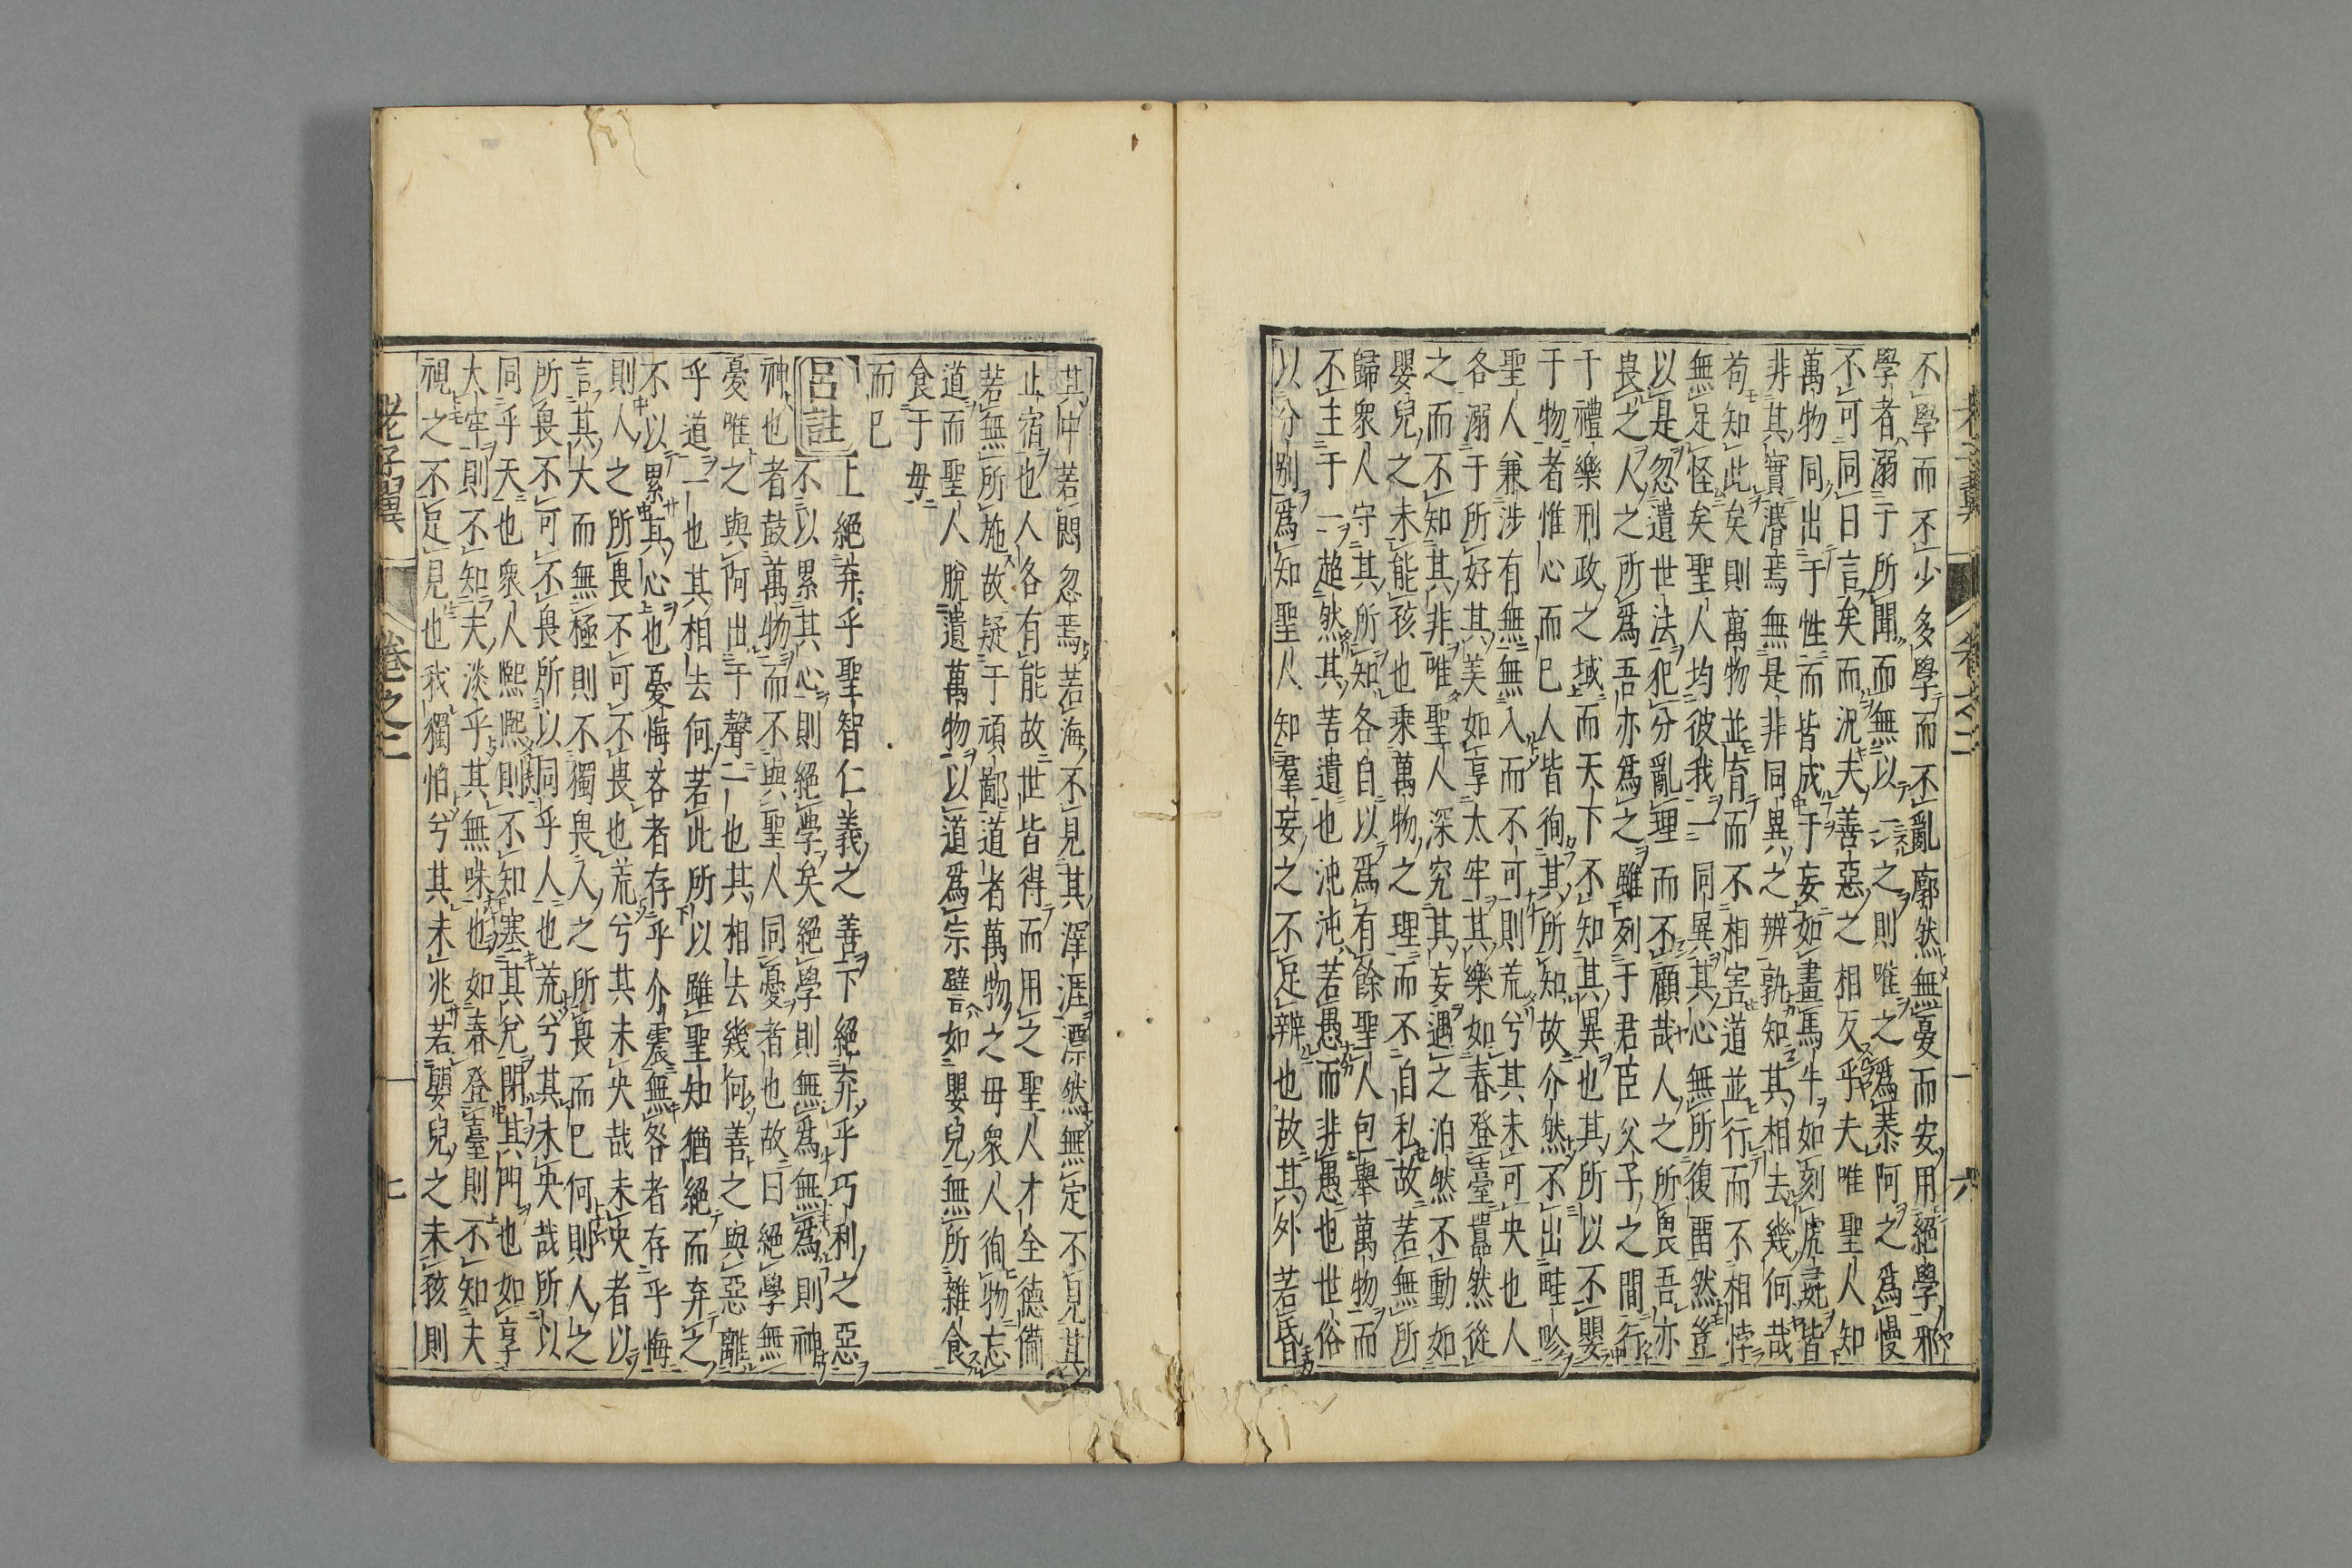 不學而不少多學而不亂廓然無憂而安用絕學邪
學者溺于所聞而無以一之則唯之爲恭阿之爲慢
不可同日言矣而況夫善惡之相反乎夫唯聖人知
萬物同出于性而皆成于妄如畫馬牛如刻虎彘皆
非其實湣焉無是非同異之辨孰知其相去幾何哉
苟知此矣則萬物並育而不相害道並行而不相悖
無足怪矣聖人均彼我一同異其心無所復留然豈
以是忽遺世法犯分亂理而不顧哉人之所畏吾亦
畏之人之所爲吾亦爲之雖列于君臣父子之間行
于禮樂刑政之域而天下不知其異也其所以不嬰
于物者惟心而已人皆徇其所知故介然不出畦畛
聖人兼涉有無無入而不可則荒兮其未可央也人
各溺于所好其美如享太牢其樂如春登臺嚚然從
之而不知其非唯聖人深究其妄遇之泊然不動如
嬰兒之未能孩也乘萬物之理而不自私故若無所
歸衆人守其所知各自以爲有餘聖人包舉萬物而
不主于一超然其若遺也沌沌若愚而非愚也世俗
以分別爲知聖人知羣妄之不足辨也故其外若昏
老子翼 卷之二 六
其中若悶忽焉若海不見其津涯漂然無定不見其
止宿也人各有能故世皆得而用之聖人才全德備
若無所施故疑于頑鄙道者萬物之母衆人徇物忘
道而聖人脫遺萬物以道爲宗譬如嬰兒無所雜食
食于母
而已
呂註 上絕弃乎聖智仁義之善下絕弃乎巧利之惡
不以累其心則絕學矣絕學則無爲無爲則神
神也者鼓萬物而不與聖人同憂者也故曰絕學無
憂唯之與阿出于聲一也其相去幾何善之與惡離
乎道一也其相去何若此所以雖聖知猶絕而弃之
不以累其心也憂悔吝者存乎介震無咎者存乎悔
則人之所畏不可不畏也荒兮其未央哉未央者以
言其大而無極則不獨畏人之所畏而已何則人之
所畏不可不畏所以同乎人也荒兮其未央哉所以
同乎天也衆人熙熙則不知塞其兌閉其門也如享
太牢則不知夫淡乎其無味也如春登臺則不知夫
視之不足見也我獨怕兮其未兆若嬰兒之未孩則
老子翼 卷之二 七